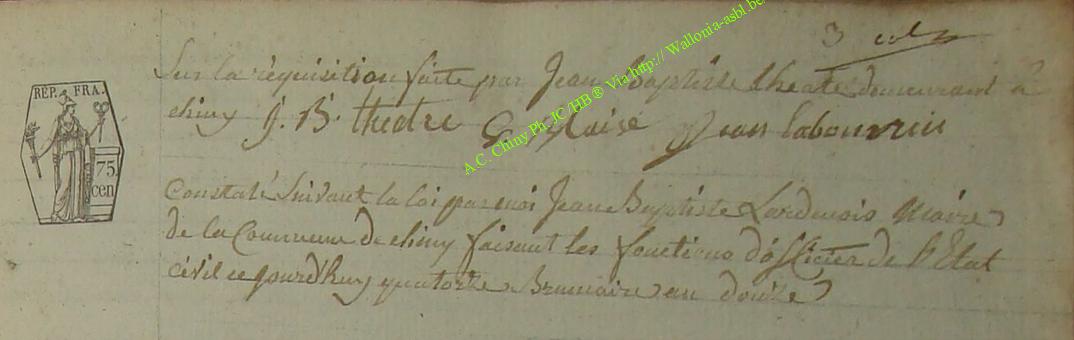 3
Sur la réquisition faite par Jean Baptiste theate demeurant à
chiny J. B. theate Blaise Jean labourrin
RÉP. FRA.
75.
cen
Constaté Suivant la loi par moi Jean Baptiste Lardenois Maire
de la Commune de chiny faisant les fonctions d'officier de l'Etat
civil ce jourd'huy quatorze Brumaire an douze
A.C. Chiny Ph. JC /HB ® Via http:// Wallonia-asbl.be